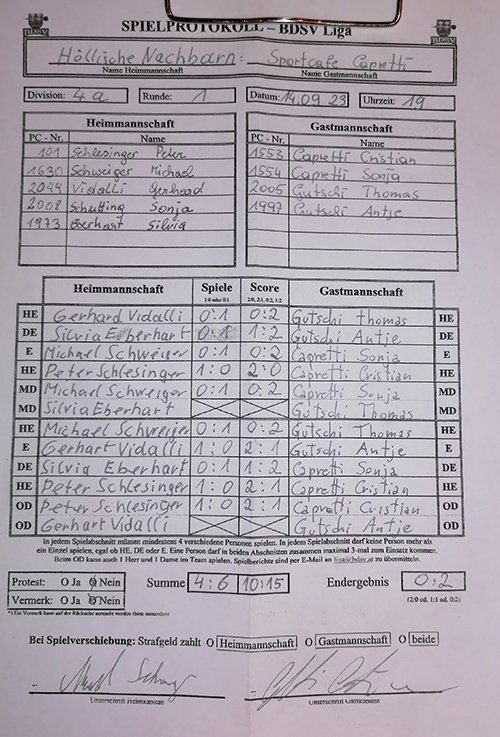 SPIELPROTOKOLL – BDSV Liga
BDSV BDSV
Höllische Nachbarn : Sportcafe Capretti
Name Heimmannschaft Name Gastmannschaft
Division: 4a Runde: 1 Datum: 14.09 23 Uhrzeit: 19
Heimmannschaft Gastmannschaft
PC - Nr. Name PC - Nr. Name
101 Schlesinger Peter 1553 Capretti Cristian
1630 Schweiger Michael 1554 Capretti Sonja
2044 Vidalli Gerhard 2005 Gutschi Thomas
2008 Schutting Sonja 1997 Gutschi Antje
1973 Eberhart Silvia
Heimmannschaft Spiele Score Gastmannschaft
1:0 oder 0:1 2:0, 2:1, 0:2, 1:2
HE Gerhard Vidalli 0:1 0:2 Gutschi Thomas HE
DE Silvia Eberhart 0:1 1:2 Gutschi Antje DE
E Michael Schweiger 0:1 0:2 Capretti Sonja E
HE Peter Schlesinger 1:0 2:0 Capretti Cristian HE
MD Michael Schweiger 0:1 0:2 Capretti Sonja MD
MD Silvia Eberhart Gutschi Thomas MD
HE Michael Schweiger 0:1 0:2 Gutschi Thomas HE
E Gerhart Vidalli 1:0 2:1 Gutschi Antje E
DE Silvia Eberhart 0:1 1:2 Capretti Sonja DE
HE Peter Schlesinger 1:0 2:1 Capretti Cristian HE
OD Peter Schlesinger 1:0 2:1 Capretti Cristian OD
OD Gerhart Vidalli Gutschi Antje OD
In jedem Spielabschnitt müssen mindestens 4 verschiedene Personen spielen. In jedem Spielabschnitt darf keine Person mehr als
ein Einzel spielen, egal ob HE, DE oder E. Eine Person darf in beiden Abschnitten zusammen maximal 3-mal zum Einsatz kommen.
Beim OD kann auch 1 Herr und 1 Dame im Team spielen. Spielberichte sind per E-Mail an liga@bdsv.at zu übermitteln.
Protest: O Ja O Nein Summe 4:6 10:15 Endergebnis 0:2
Vermerk: O Ja O Nein (2:0 od. 1:1 od. 0:2)
*) Ein Vermerk kann auf der Rückseite
Bei Spielverschiebung: Strafgeld zahlt O Heimmannschaft O Gastmannschaft O beide
Unterschrift Heimkapitän Unterschrift Gastkapitän